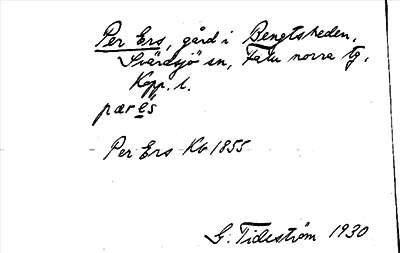 Per Ers, gård i Bengtsheden,
Svärdsjö sn, Falu norra tg,
Kopp. l.
pær és
Per Ers Kb 1855
G. Tideström 1930